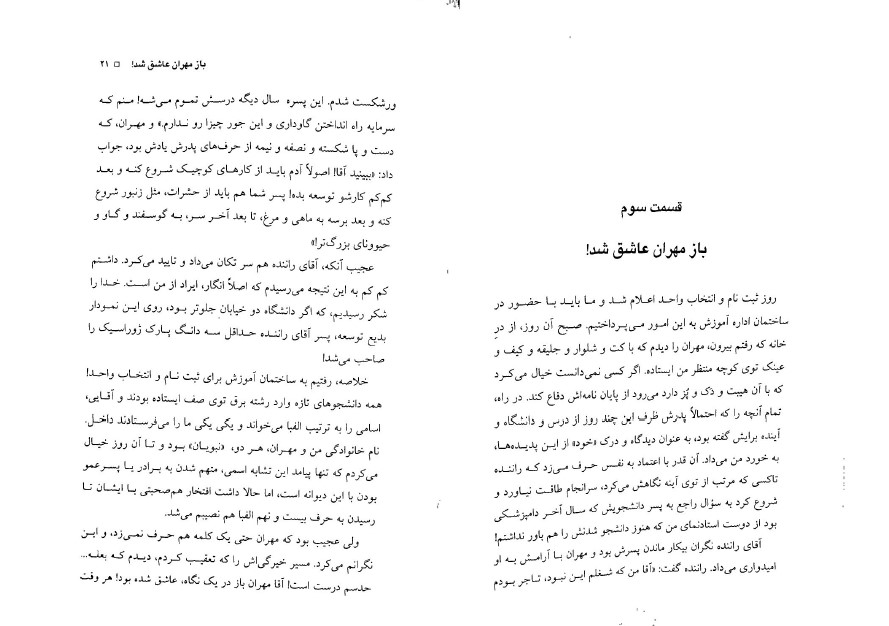 قسمت سوم
باز مهران عاشق شد!
روز ثبت نام و انتخاب واحد اعلام شد و ما باید با حضور در
ساختمان اداره آموزش به این امور می‌پرداختیم. صبح آن روز، از درِ
خانه که رفتم بیرون، مهران را دیدم که با کت و شلوار و جلیقه و کیف و
عینک توی کوچه منتظر من ایستاده. اگر کسی نمی‌دانست خیال می‌کرد
که با آن هیبت و دَک و پُز دارد می‌رود از پایان نامه‌اش دفاع کند. در راه،
تمام آنچه را که احتمالاً پدرش ظرف این چند روز از درس و دانشگاه و
آینده برایش گفته بود، به عنوان دیدگاه و درک «خود» از این پدیده‌ها،
به خورد من می‌داد. آن قدر با اعتماد به نفس حرف می‌زد که راننده
تاکسی که مرتب از توی آینه نگاهش می‌کرد، سرانجام طاقت نیاورد و
شروع کرد به سؤال راجع به پسر دانشجویش که سال آخر دامپزشکی
بود از دوست استادنمای من که هنوز دانشجو شدنش را هم باور نداشتم!
آقای راننده نگران بیکار ماندن پسرش بود و مهران با آرامش به او
امیدواری می‌داد. راننده گفت: «آقا من که شغلم این نبود، تاجر بودم
باز مهران عاشق شد! □ ۲۱
ورشکست شدم. این پسره سال دیگه درسش تموم می‌شه! منم که
سرمایه راه انداختن گاوداری و این جور چیزا رو ندارم.» و مهران، که
دست و پا شکسته و نصفه و نیمه از حرف‌های پدرش یادش بود، جواب
داد: «ببینید آقا! اصولاً آدم باید از کارهای کوچیک شروع کنه و بعد
کم‌کم کارشو توسعه بده! پسر شما هم باید از حشرات، مثل زنبور شروع
کنه و بعد برسه به ماهی و مرغ، تا بعد آخر سر، به گوسفند و گاو و
حیوونای بزرگ‌تر!»
عجیب آنکه، آقای راننده هم سر تکان می‌داد و تایید می‌کرد. داشتم
کم کم به این نتیجه می‌رسیدم که اصلاً انگار، ایراد از من است. خدا را
شکر رسیدیم، که اگر دانشگاه دو خیابانِ جلوتر بود، روی این نمودار
بدیع توسعه، پسر آقای راننده حداقل سه دانگ پارک ژوراسیک را
صاحب می‌شد!
خلاصه، رفتیم به ساختمان آموزش برای ثبت نام و انتخاب واحد!
همه دانشجوهای تازه وارد رشته برق توی صف ایستاده بودند و آقایی،
اسامی را به ترتیب الفبا می‌خواند و یکی یکی ما را می‌فرستادند داخل.
نام خانوادگی من و مهران، هر دو، «نبویان» بود و تا آن روز خیال
می‌کردم که تنها پیامد این تشابه اسمی، متهم شدن به برادر یا پسرعمو
بودن با این دیوانه است، اما حالا داشت افتخار هم‌صحبتی با ایشان تا
رسیدن به حرف بیست و نهم الفبا هم نصیبم می‌شد.
ولی عجیب بود که مهران حتی یک کلمه هم حرف نمی‌زد، و این
نگرانم می‌کرد. مسیر خیرگی‌اش را که تعقیب کردم، دیدم که بعله...
حدسم درست است! آقا مهران باز در یک نگاه، عاشق شده بود! هر وقت